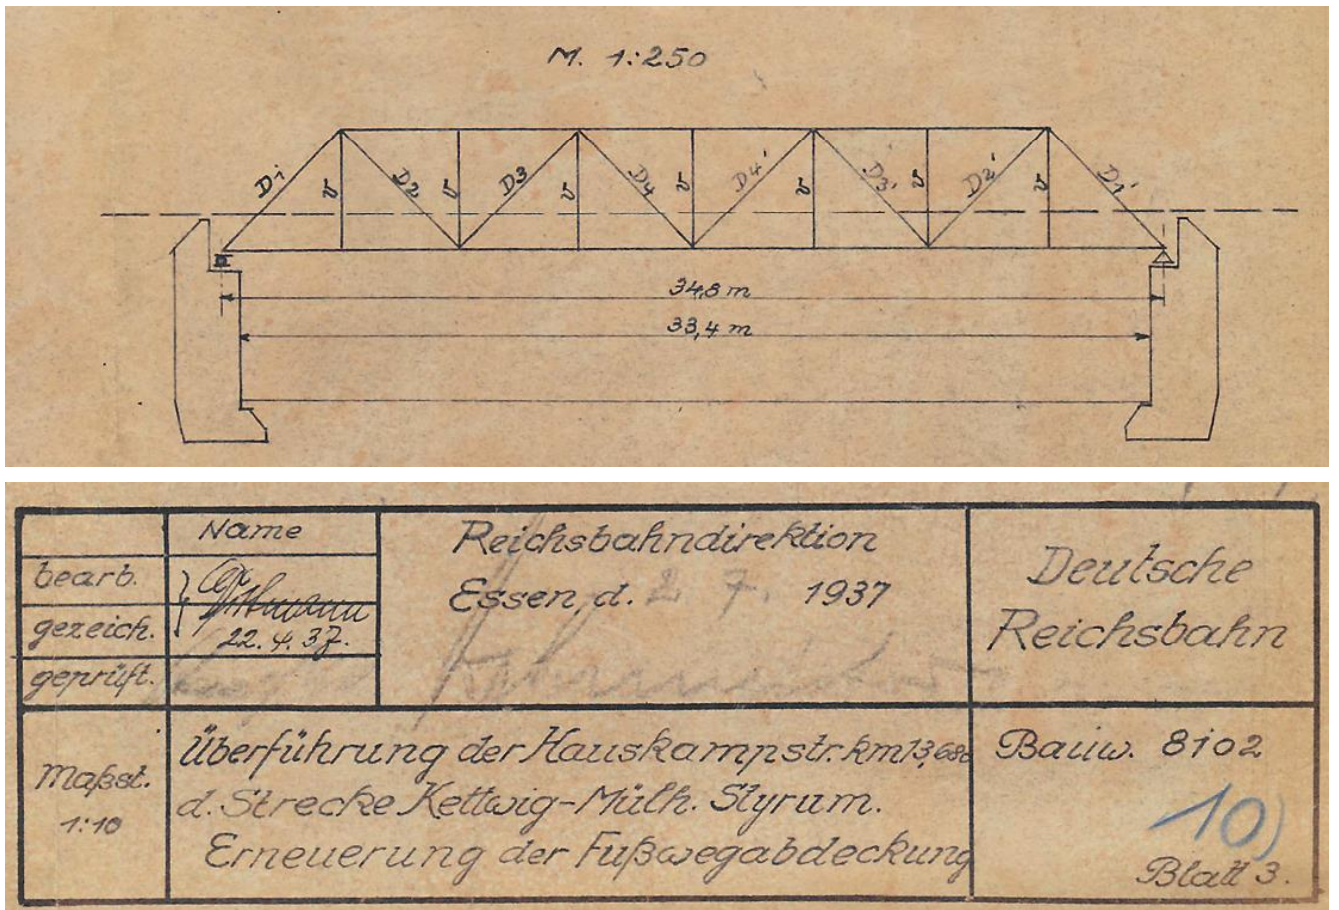 M. 1:250
D1 v D2 v D3 v D4 v D4' v D3' v D2' v D1'
34,8 m
33,4 m
Name
bearb.
gezeich.
22.4.37.
geprüft.
Reichsbahndirektion
Essen, d. 2. 7. 1937
Deutsche
Reichsbahn
Maßst.
1:10
Überführung der Hauskampstr. km 13,680
d. Strecke Kettwig-Mülh. Styrum.
Erneuerung der Fußwegabdeckung
Bauw. 8102
10)
Blatt 3.